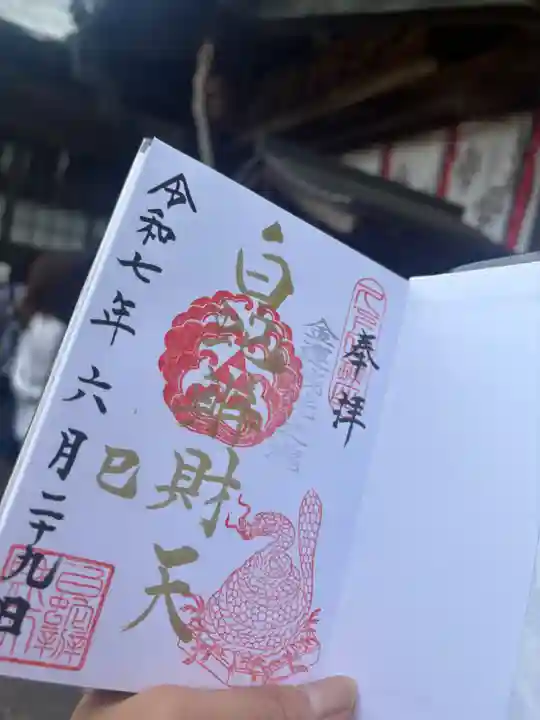 奉拝
白蛇辨財天
巳
令和七年六月二十九日